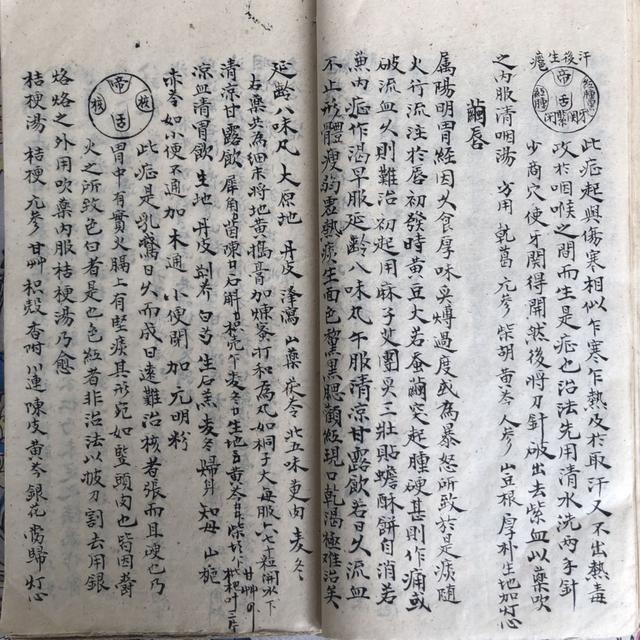 汗後生疮
帝舌
此症起與傷寒相似乍寒乍熱及於取汗又不出熱毒
攻於咽喉之間而生是症也治法先用清水洗两手針
少商穴使牙関得開然後將刀針破出去紫血以藥吹
之内服清咽湯 方用 乾葛 元参 柴胡 黄芩 人参 山豆根 厚朴 生地 加灯心
繭唇
属陽明胃經因火食厚味炙煿過度或為暴怒所致於是痰随
火行流注於唇初發時黄豆大若蚕繭突起腫硬甚則作痛或
破流血久則難治初起用麻子艾圓炙三壮貼蟾酥餅自消若
兼内症作渴早服延齡八味丸午服清凉甘露飲若日久流血
不止形體瘦弱虚熱痰生面色黧黑腮顴红現口乾渴極难治矣
延齡八味丸 大原地 丹皮 泽瀉 山藥 茯令 北五味 更肉 麦冬
右藥共為細末將地黄搗膏加煉蜜打和為丸如桐子大每服六七十粒開水下
清凉甘露飲 犀角 茵陳 石斛 枳壳 麦冬 生地 黄芩 柴
凉血清胃飲 生地 丹皮 荆芥 白芍 生石羔 麦冬 歸身 知母 山栀
赤苓 如小便不通加木通 小便閉加元明粉
核 帝舌 核
此症是乳鵞日久而成日遠难治核者張而且硬也乃
胃中有實火膈上有坚痰其形宛如坚頭肉也皆因欝
火之所致色白者是也色红者非治法以披刀割去用銀
烙烙之外用吹藥内服桔梗湯乃愈
桔梗湯 桔梗 元参 甘艸 枳殼 香附 川連 陳皮 黄芩 銀花 當歸 灯心